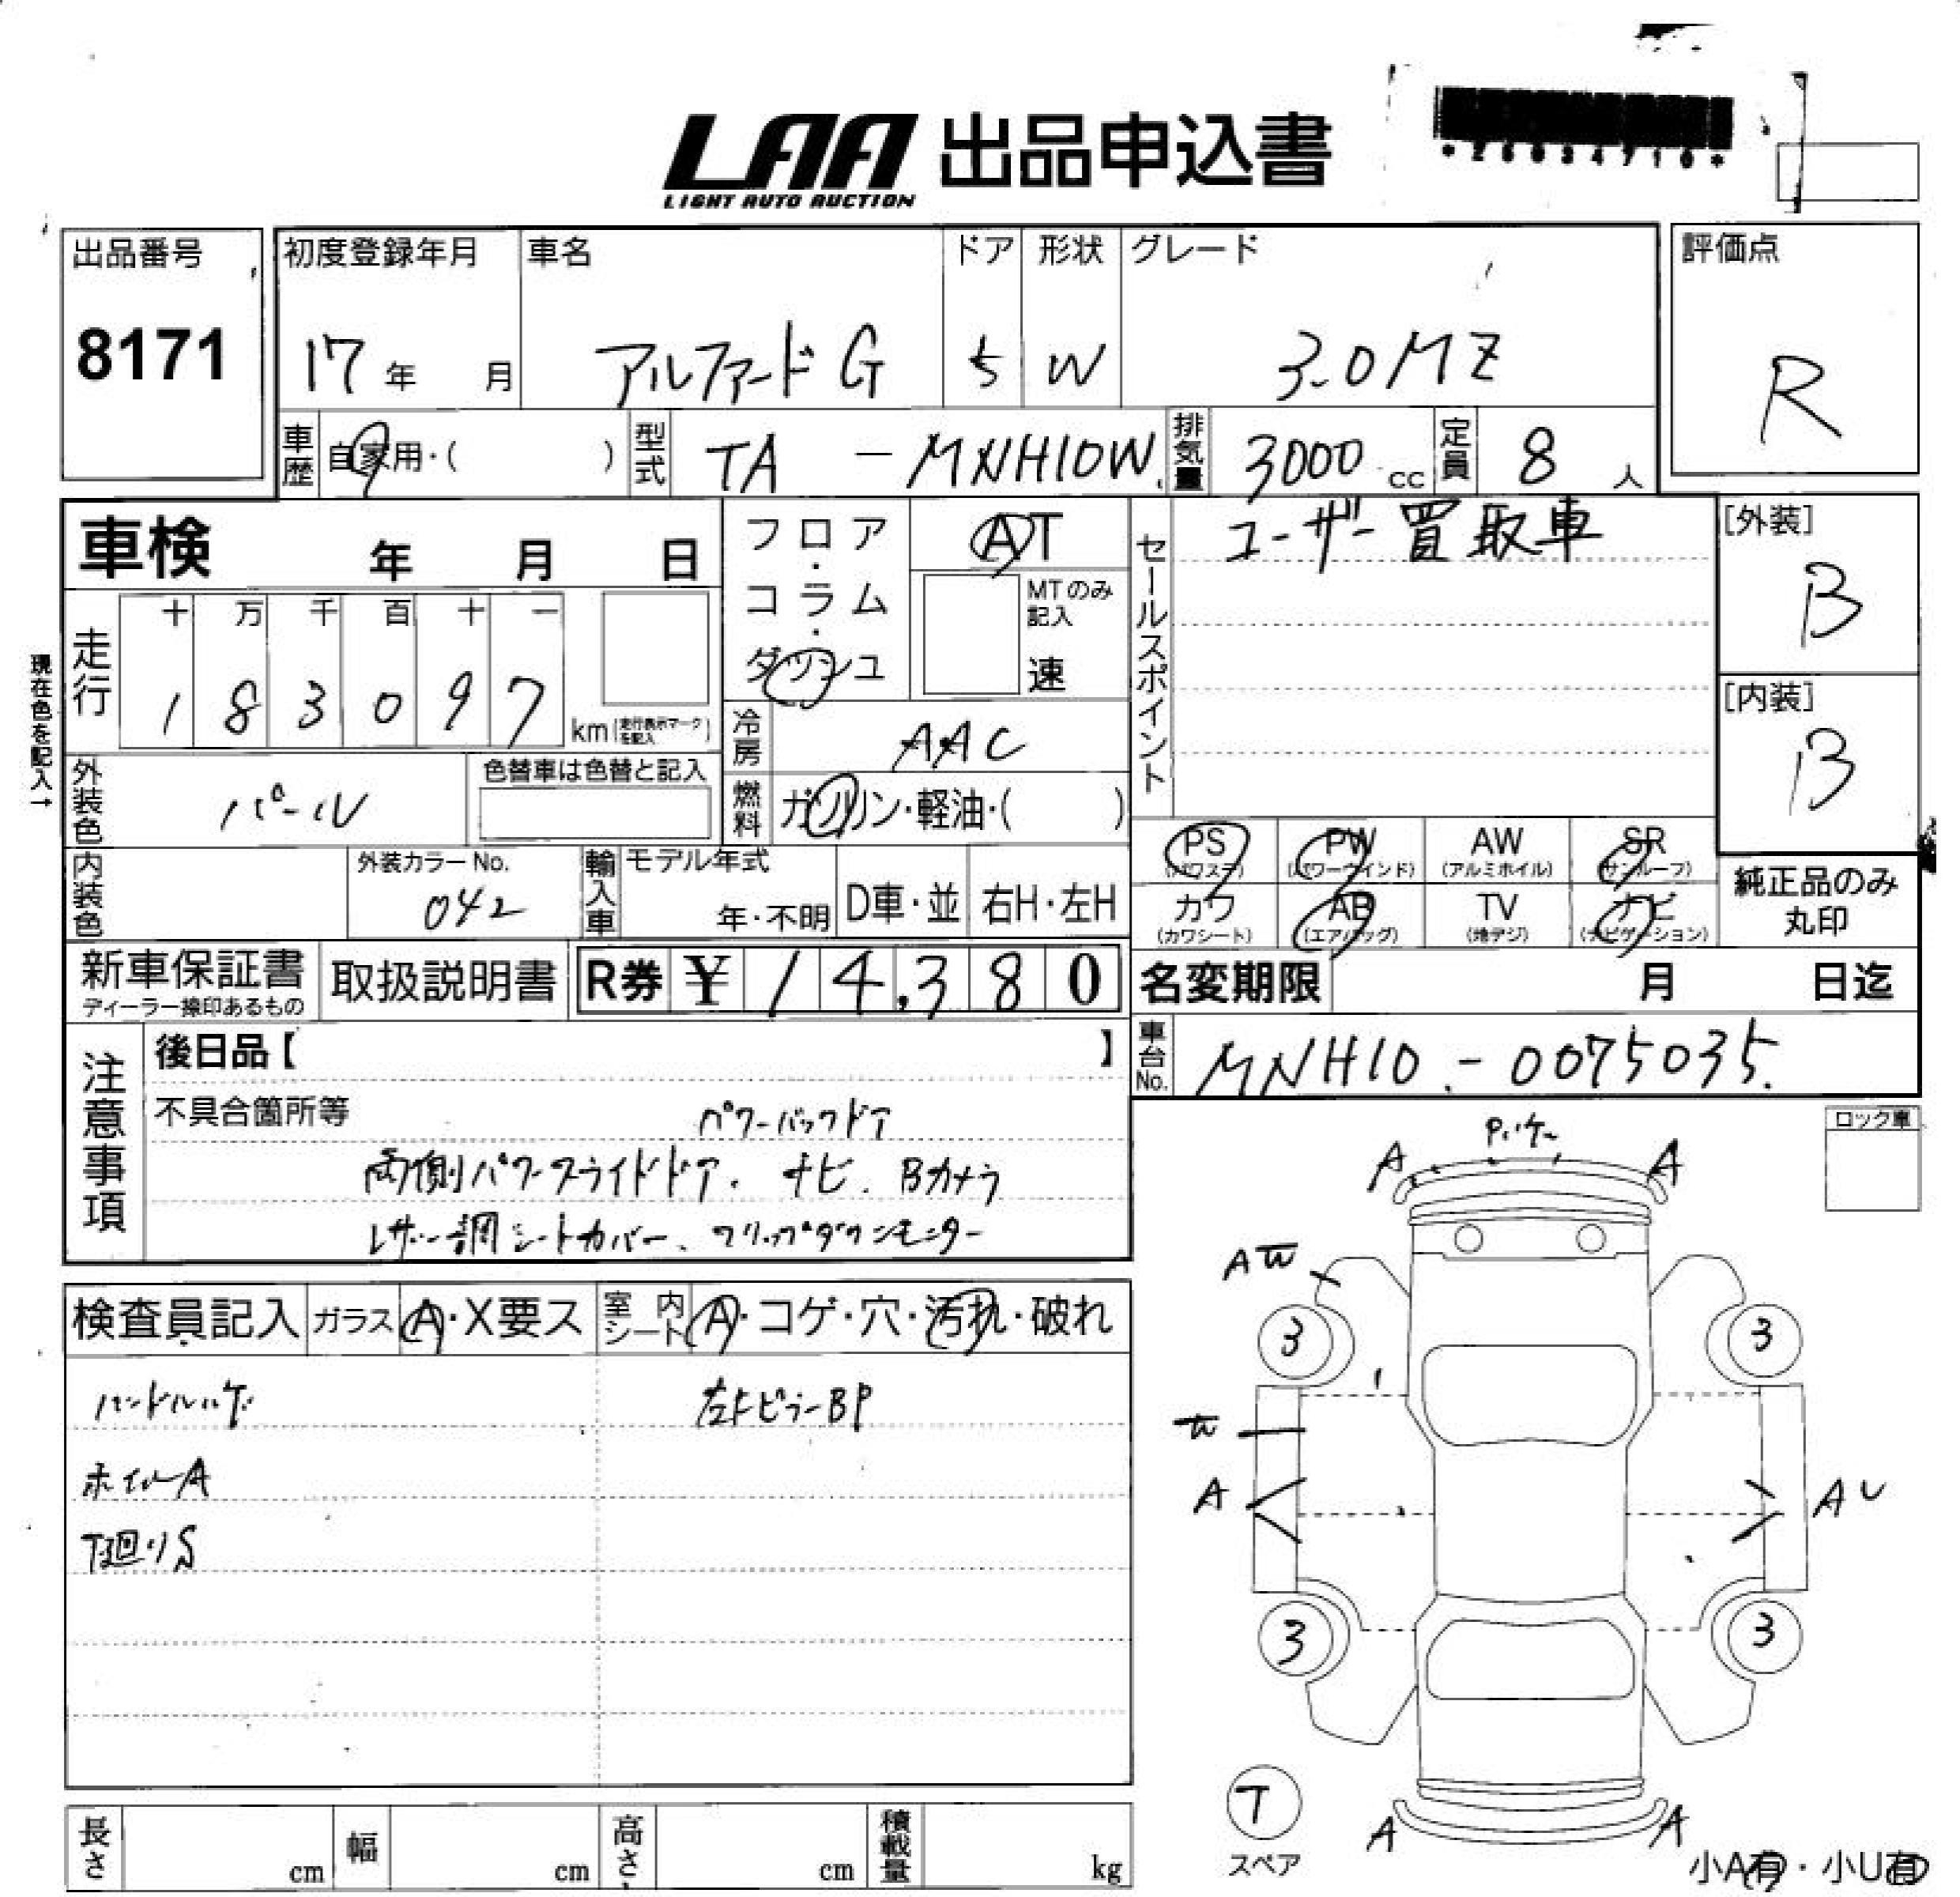 LAA 出品申込書
LIGHT AUTO AUCTION
*25034710*
出品番号
8171
初度登録年月
17年 月
車名
アルファードG
ドア
5
形状
W
グレード
3.0MZ
評価点
R
車歴
自家用・( )
型式
TA - MNH10W
排気量
3000 cc
定員
8 人
車検 年 月 日
フロア・コラム・ダッシュ
AT
MTのみ記入
速
セールスポイント
ユーザー買取車
[外装]
B
[内装]
B
現在色を記入→
走行
十 万 千 百 十 一
1 8 3 0 9 7
km(走行表示マークを記入)
冷房
AAC
外装色
パール
色替車は色替と記入
燃料
ガソリン・軽油・( )
内装色
外装カラーNo.
042
輸入車
モデル年式
年・不明
D車・並
右H・左H
PS
(パワステ)
PW
(パワーウインド)
AW
(アルミホイル)
SR
(サンルーフ)
カワ
(カワシート)
AB
(エアバッグ)
TV
(地デジ)
ナビ
(ナビゲーション)
純正品のみ
丸印
新車保証書
ディーラー捺印あるもの
取扱説明書
R券 ¥ 14,380
名変期限 月 日迄
車台No.
MNH10-0075035
注意事項
後日品【 】
不具合箇所等
パワーバックドア
両側パワースライドドア、ナビ、Bカメラ
レザー調シートカバー、フリップダウンモニター
ロック車
検査員記入
ガラス
A・X要ス
室内シート
A・コゲ・穴・汚れ・破れ
ハンドルハゲ
左トピラーBP
ホイルA
下廻りS
A
A
AW
3
3
W
A
AU
3
3
T
スペア
A
A
小A有・小U有
長さ cm
幅 cm
高さ cm
積載量 kg